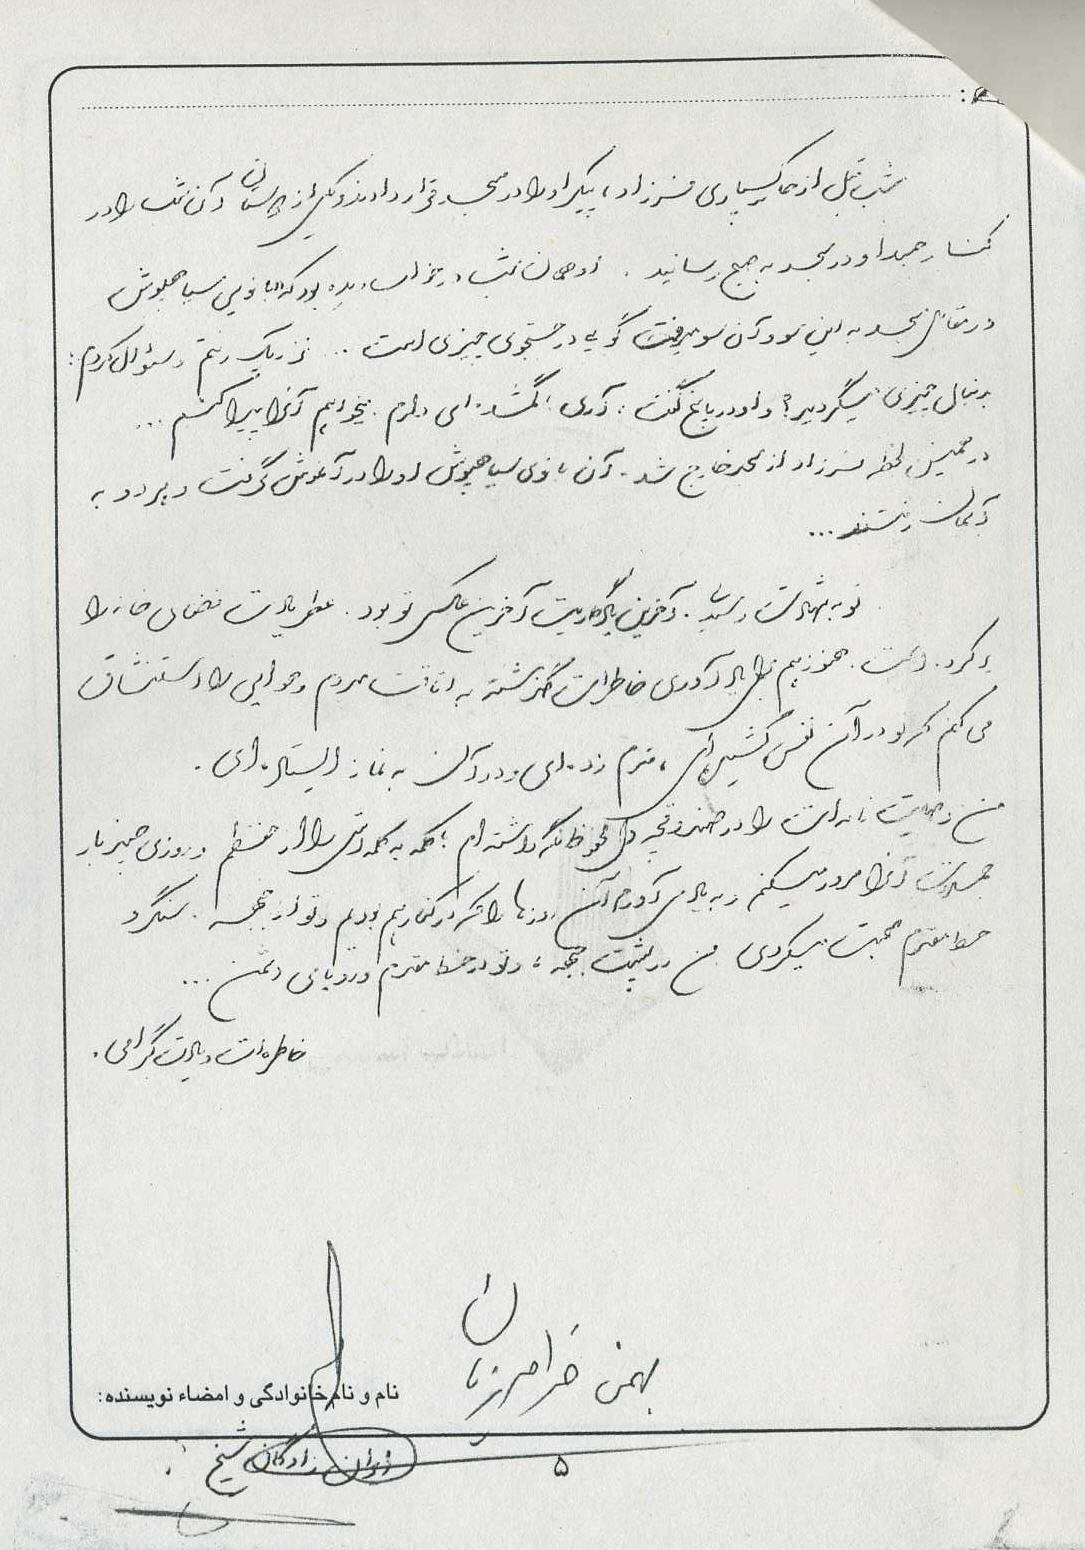 شب قبل از خاکسپاری فرزاد، پیکر او را در مسجد قرار دادند و یکی از دوستان آن شب را در
کنار جسد او در مسجد به صبح رسانید. او همان شب در خواب دیده بود که بانویی سیاهپوش
در مقابل مسجد به این سو و آن سو میرفت گویی در جستجوی چیزی است .. نزدیک رفتم و سئوال کردم:
بدنبال چیزی میگردید؟ و او در پاسخ گفت: آری، گمشده ای دارم میخواهم آنرا پیدا کنم ...
در همین لحظه فرزاد از مسجد خارج شد. آن بانوی سیاهپوش او را در آغوش گرفت و هر دو به
آسمان رفتند ...
تو به شهادت رسیدی. آخرین یادگاریت آخرین عکس تو بود. عطر یادت فضای خانه را
پر کرده است. هنوز هم برای یادآوری خاطرات گذشته به اتاقت میروم و هوایی را استنشاق
می کنم که تو در آن نفس کشیده ای، قدم زده ای و در آن به نماز ایستاده ای.
من وصیت نامه ات را در صندوقچه دل محفوظ نگه داشته ام؛ کلمه به کلمه اش را از حفظم و روزی چند بار
جملات آنرا مرور میکنم و به یاد می آورم آن روزها را که در کنار هم بودیم و تو از جبهه، سنگر و
خط مقدم صحبت میکردی من در پشت جبهه، و تو در خط مقدم و رویاروی دشمن ...
خاطره ات و یادت گرامی.
بهمن فرامرزیان
نام و نام خانوادگی و امضاء نویسنده:
شیخ
۵